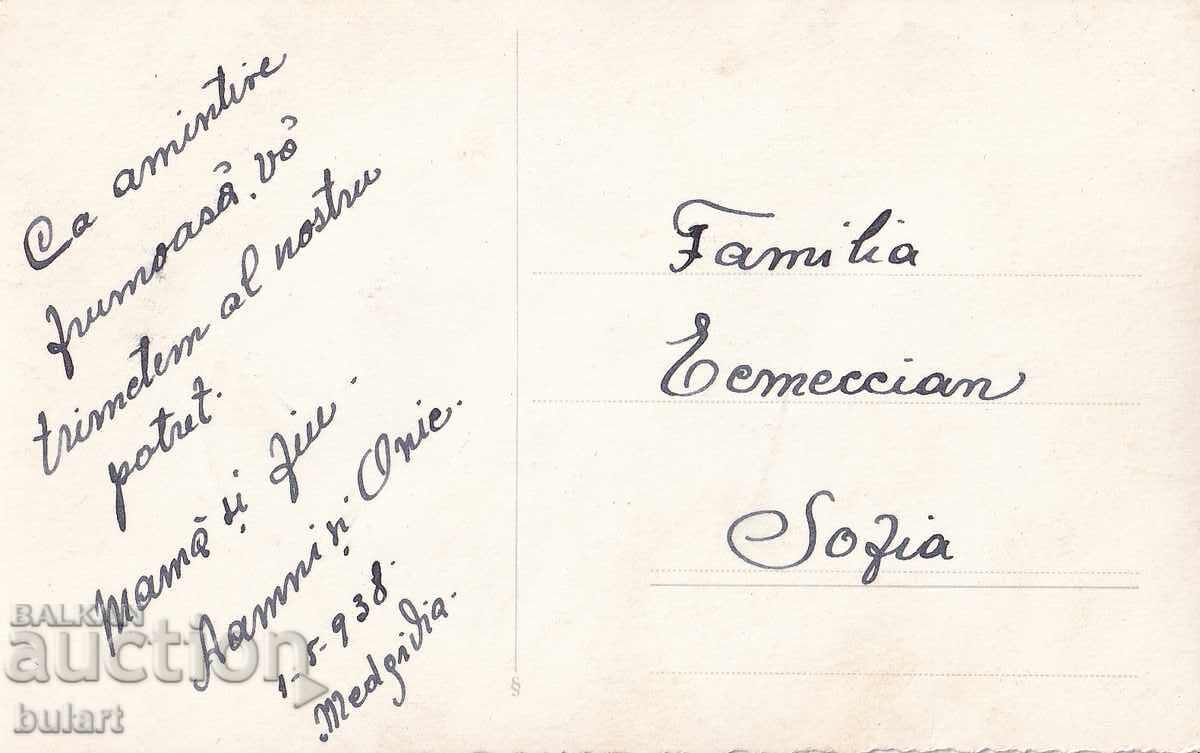 Ca amintire
frumoasă, vă
trimetem al nostru
potret.
Mamă și fiu.
și Onic.
1-5-938.
Medgidia.
Familia
Ecmeccian
Sofia
§
BALKAN
auction
bulart